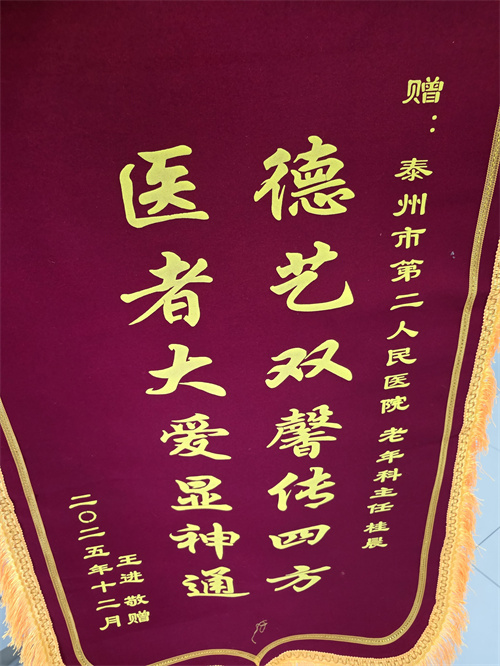 赠：泰州市第二人民医院 老年科主任桂晨
德艺双馨传四方
医者大爱显神通
王进 敬赠
二〇二五年十二月